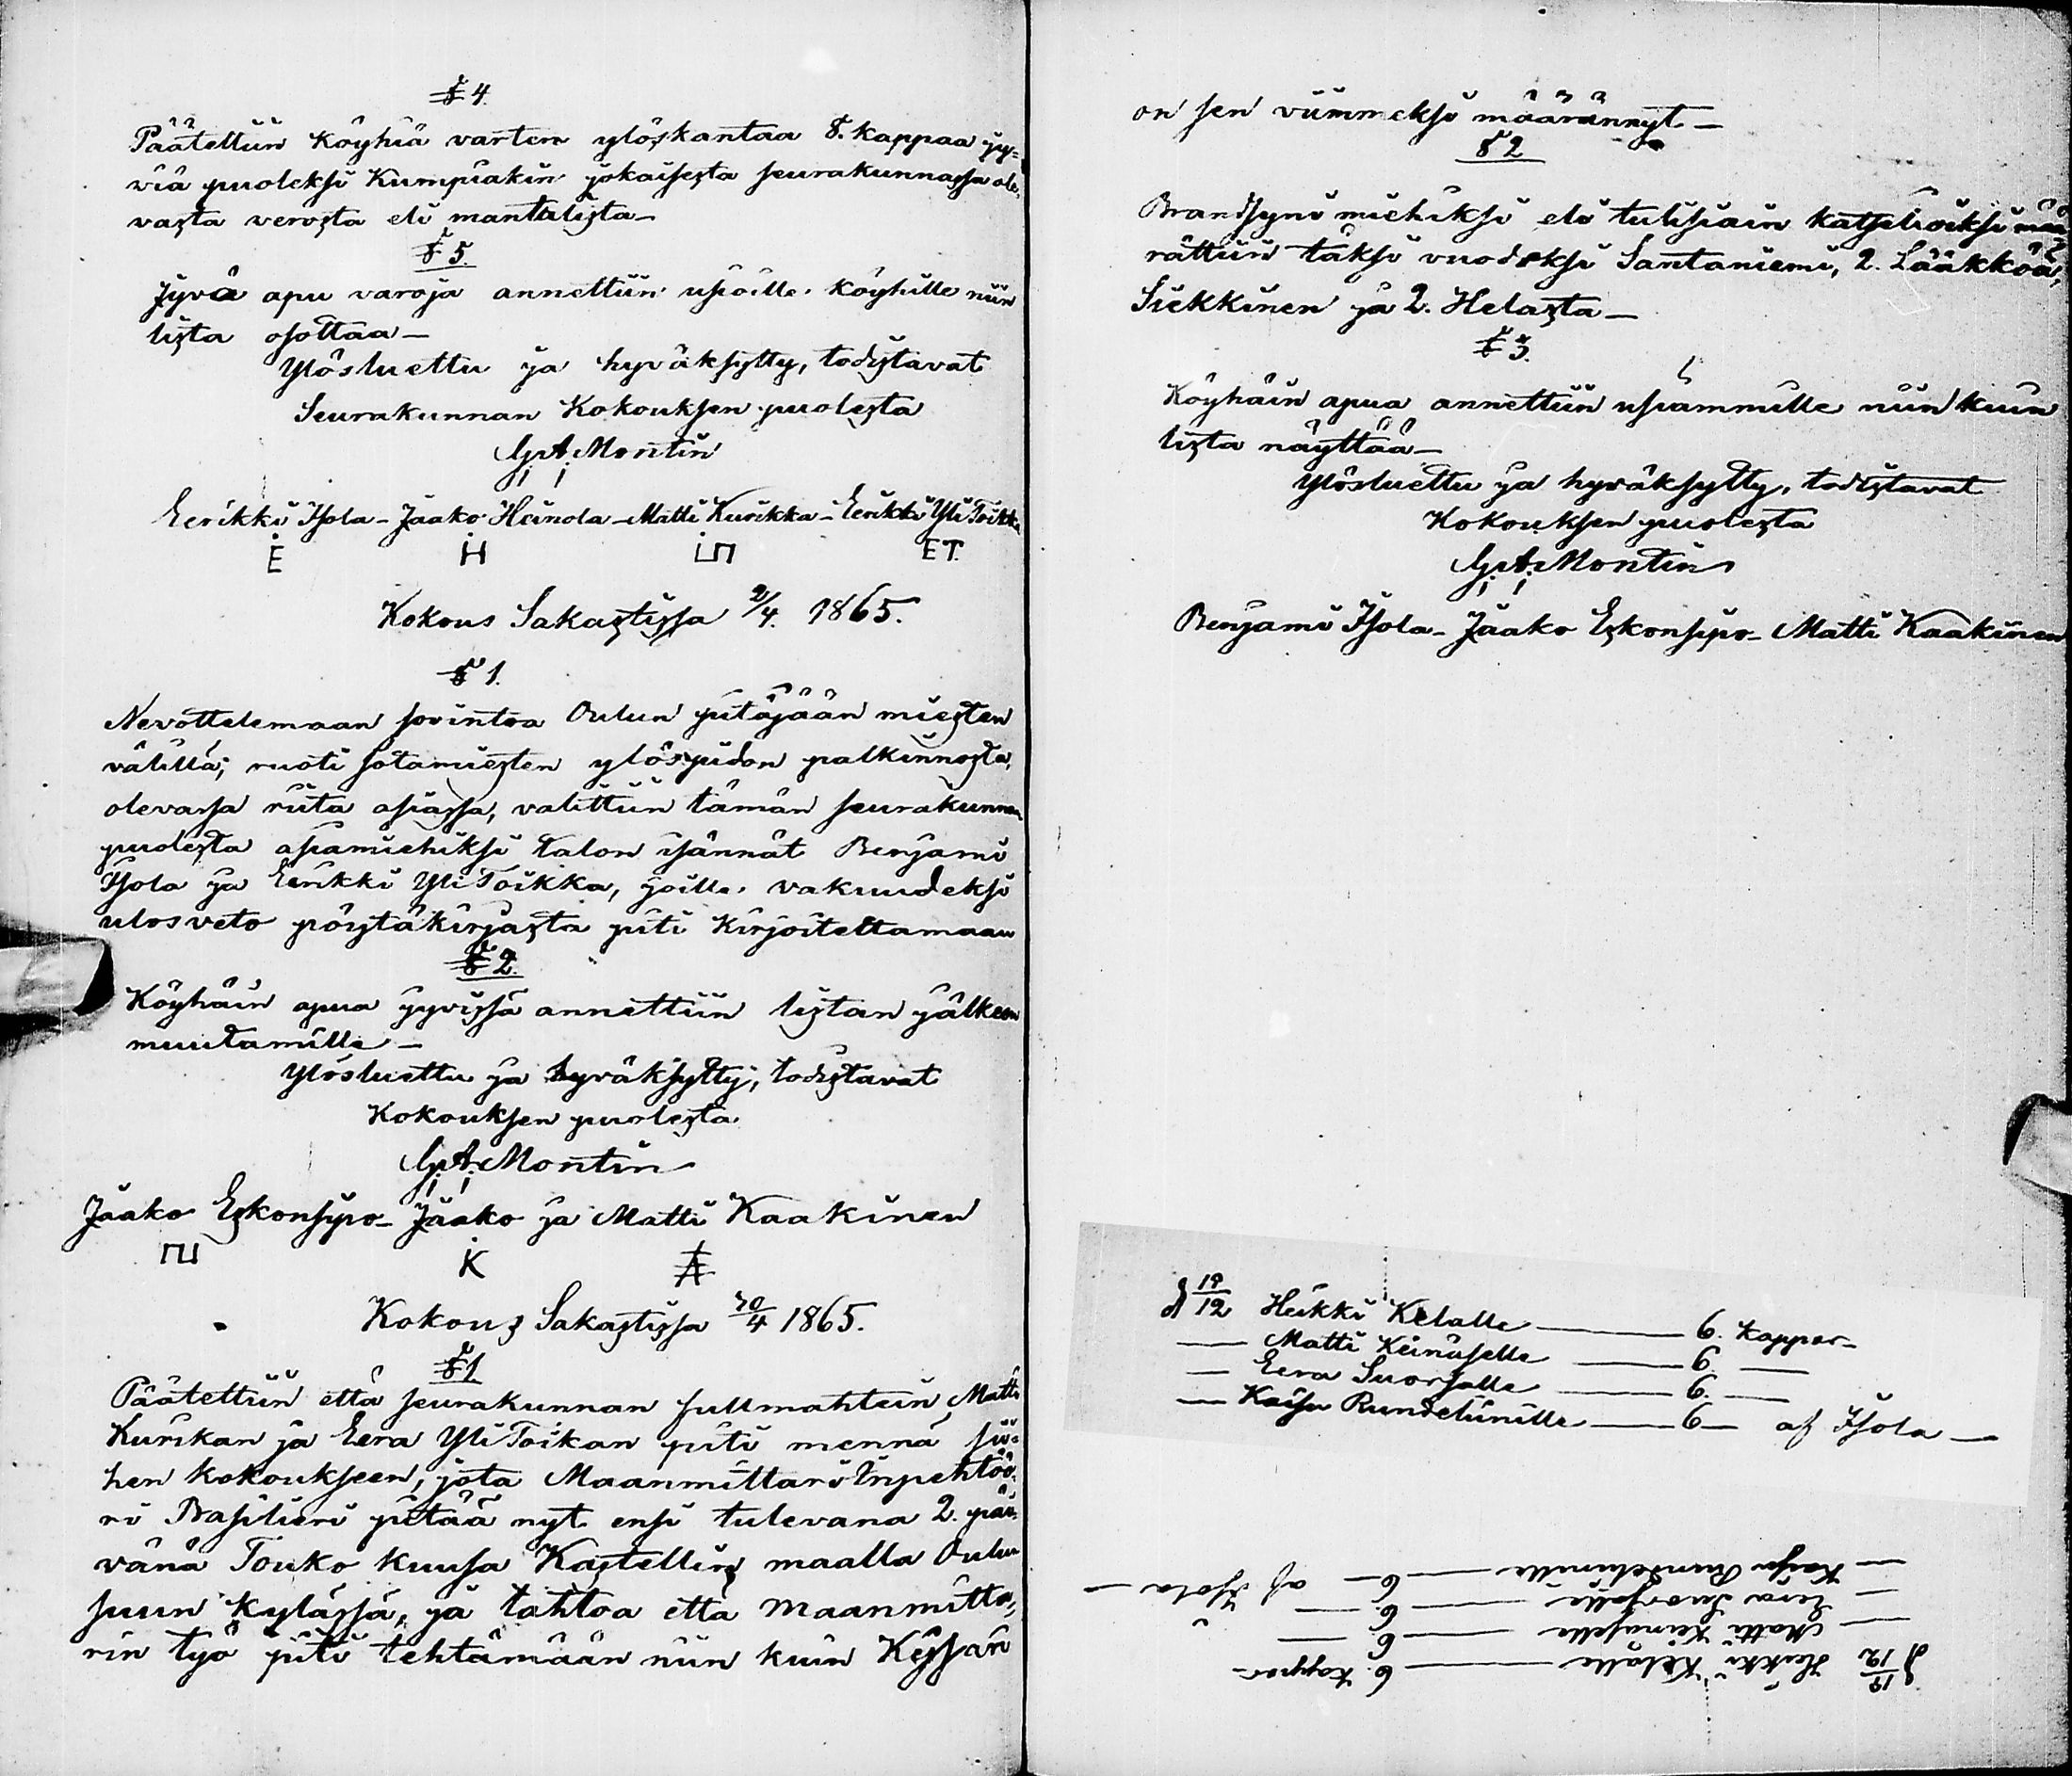 § 4.
Päätettiin köyhiä varten ylöskantaa 8. kappaa jy=
viä puoleksi kumpiakin jokaisesta seurakunnassa ole,
vasta verosta eli mantalista—
§ 5.
Jyvä apu varoja annettiin usioille köyhille niin
lista osottaa—
Ylösluettu ja hyväksytty, todistavat
Seurakunnan Kokouksen puolesta
G. A. Montin
Eerikki Isola - Jaako Heinola - Matti Kurikka - Eerikki Yli Toikka
E H ET.
Kokous Sakastissa 2/4. 1865.
§ 1.
Nevottelemaan sovintoa Oulun pitäjään miesten
välillä; ruoti sotamiesten ylöspidon palkinnosta,
olevassa riita asiassa, valittiin tämän seurakunnan
puolesta asiamiehiksi talon isännät Benjami
Isola ja Eerikki Yli Toikka, joille vakuudeksi
ulosveto pöytäkirjasta piti kirjoitettamaan
§ 2.
Köyhäin apua jyvissä annettiin listan jälkeen
muutamille—
Ylösluettu ja hyväksytty, todistavat
Kokouksen puolesta
G. A. Montin
Jaako Eskonsipo - Jaako ja Matti Kaakinen
K A
Kokous Sakastissa 30/4 1865.
§ 1
Päätettiin että seurakunnan fullmahtein Matti
Kurikan ja Eera Yli Toikan piti mennä sii=
hen kokoukseen, jota Maanmittari Inpehtöö,
ri Basilieri pitää nyt ensi tulevana 2. päi,
vänä Touko kuusa Kastellin maalla Oulun
suun kylässä, ja tahtoa että maanmitta,
rin työ piti tehtämään niin kuin Keissari
on sen viimmeksi määrännyt—
§ 2
Brandsyni miehiksi eli tulisiain katselioiksi mää
rättiin täksi vuodeksi Santaniemi, 2. Lääkköä,
Siekkinen ja 2. Helasta—
§ 3.
Köyhäin apua annettiin usiammille niin kuin
lista näyttää—
Ylösluettu ja hyväksytty, todistavat
Kokouksen puolesta
G. A. Montin
Benjami Isola - Jaako Eskonsipo - Matti Kaakinen
d 19/12 Heikki Kelalle — 6. kappar—
— Matti Keinäselle — 6. —
— Eera Suorsalle — 6. —
— Kaisa Rundeliinille — 6 — af Isola —
d 19/12 Heikki Kelalle — 6. kappar—
— Matti Keinäselle — 6 —
— Eera Suorsalle — 6. —
— Kaisa Rundeliinille — 6 — af Isola —